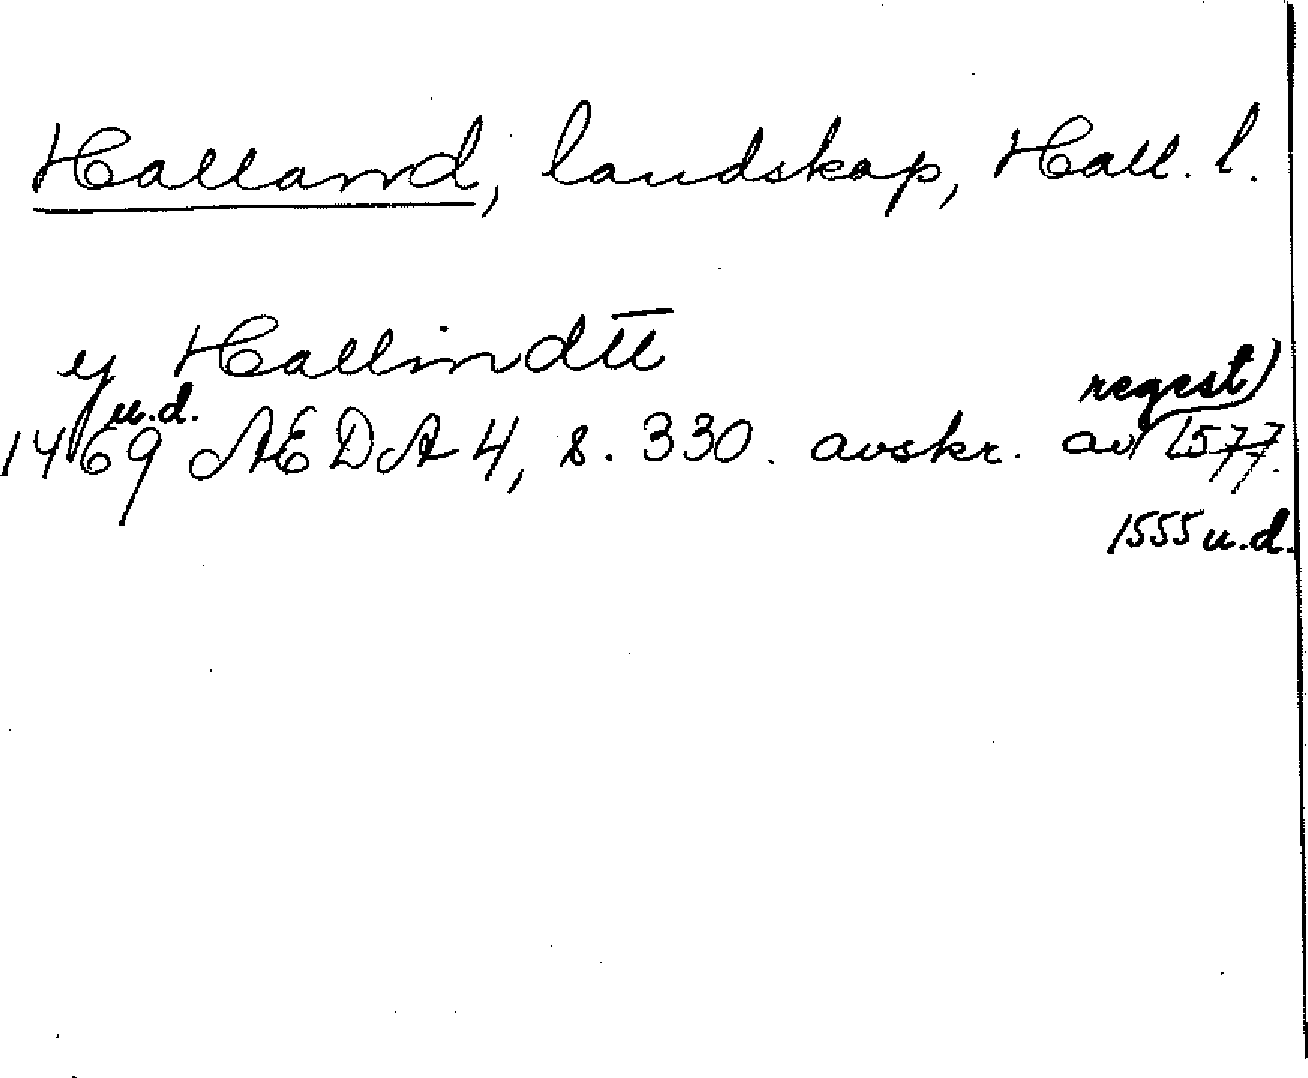 Halland, landskap, Hall. l.
y Hallindtt
regest)
u.d.
1469 AEDA 4, s. 330. avskr. av 1577.
1555 u.d.